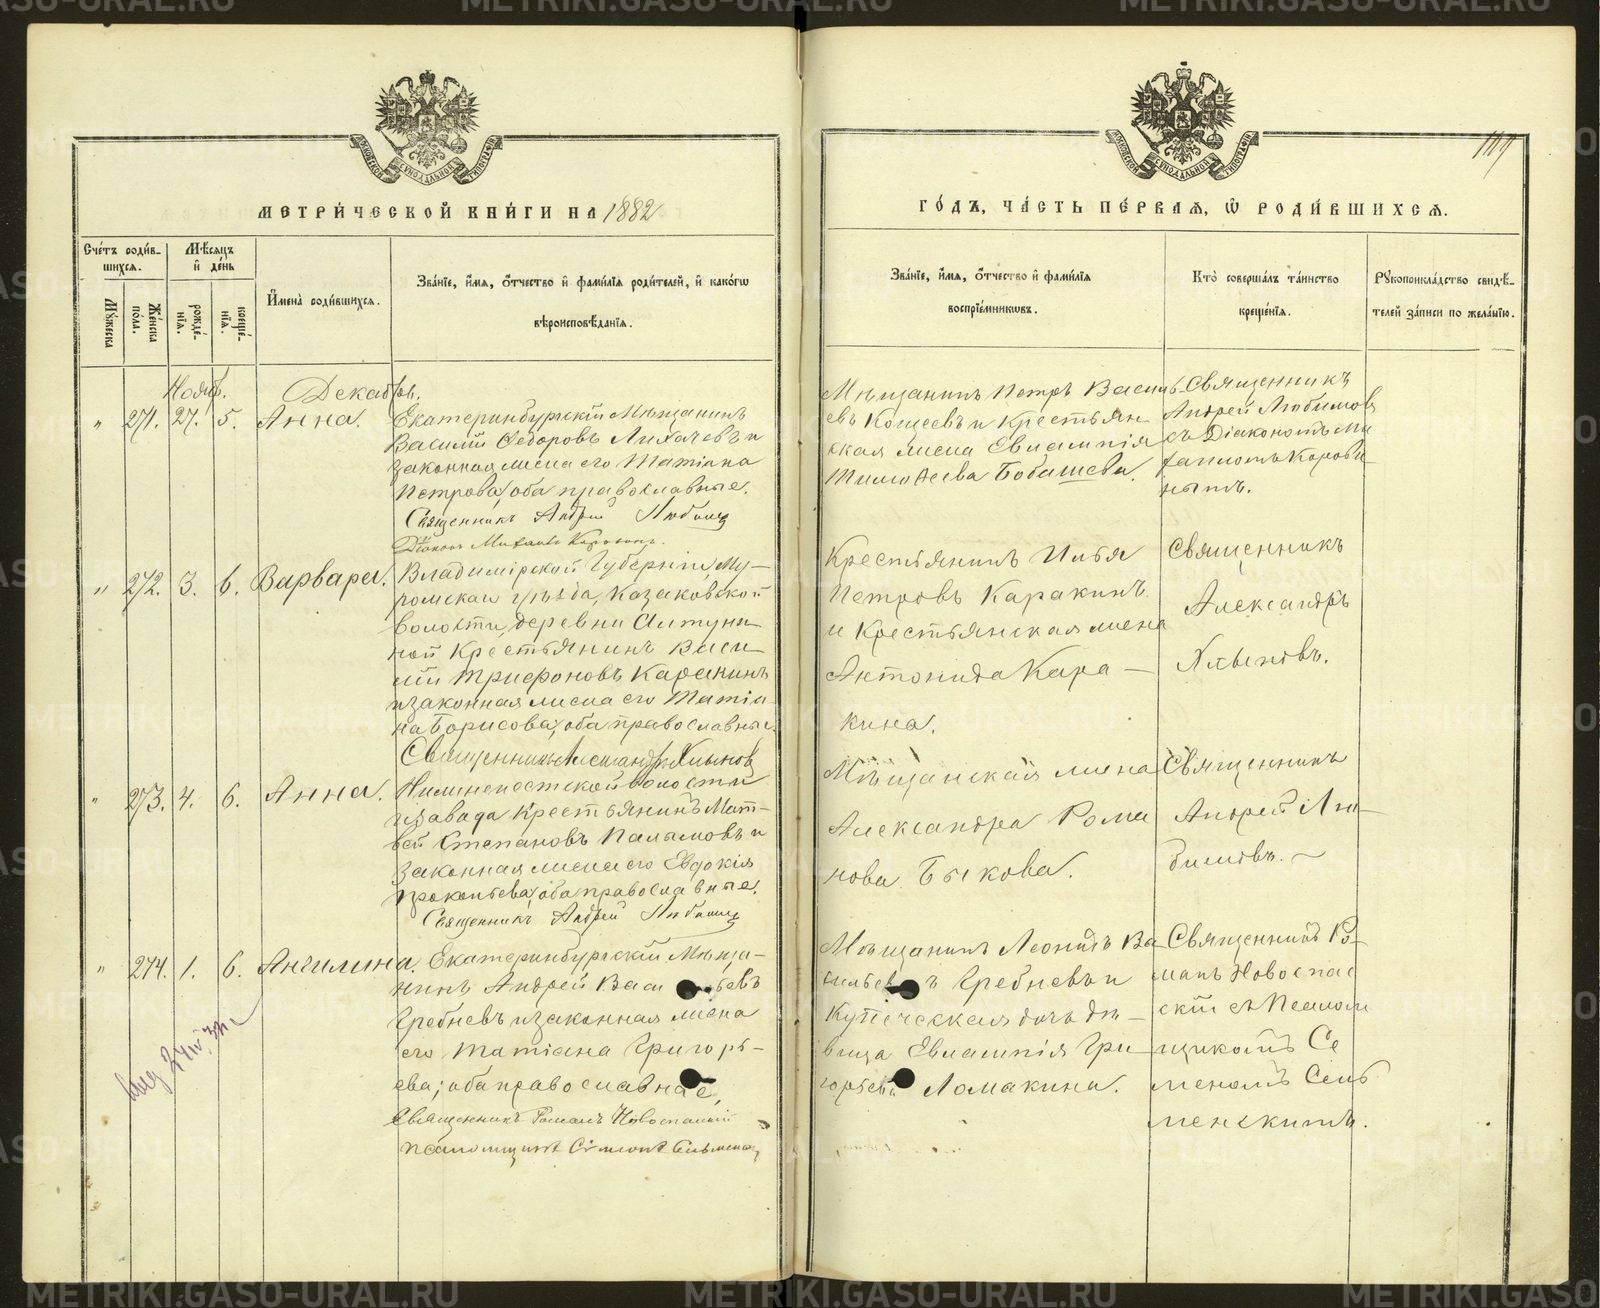 МЕТРИ́ЧЕСКОЙ КНИ́ГИ НА 1882
Сче́тъ роди́в-
шихся.
Мѣ́сяцъ
и де́нь
Мꙋжеска
Же́нска
по́ла.
рожде́-
нїя.
креще́-
нїя.
И҆мена̀ роди́вшихся.
Зва́нїе, и҆́мѧ, ѻ҆́тчество и҆ фами́лїѧ роди́телей, и҆ како́гѡ
вѣроисповѣ́данїѧ.
Нояб. Декабрь.
" 271. 27. 5. Анна. Екатеринбургскій Мѣщанинъ
Василій Ѳедоровъ Лихачевъ и
законная жена его Татіана
Петрова; оба православные.
Священникъ Андрей Любимов
Діаконъ Михаилъ Коровинъ.
" 272. 3. 6. Варвара. Владимірской Губерніи Му-
ромскаго уѣзда, Казаковской
волости, деревни
ной Крестьянинъ Васи-
лій Трифоновъ Каракинъ
и законная жена его Татіа-
на Борисова; оба православные.
Священникъ Александръ Хлыновъ
" 273. 4. 6. Анна. волости
и завода Крестьянинъ Мат-
вей Степановъ Палымовъ и
законная жена его Евдокія
Прокопьева; оба православные.
Священникъ Андрей Любимов
" 274. 1. 6. Ангелина. Екатеринбургскій Мѣща-
нинъ Андрей Васильевъ
Гребневъ и законная жена
его Татіана Григорь-
ева; оба православные.
Священникъ Романъ Новоспасскій
Псаломщикъ Симеонъ
ГО́ДЪ, ЧА́СТЬ ПЕ́РВАЯ, Ѡ҆ РОДИ́ВШИХСѦ.
Зва́нїе, и҆́мѧ, ѻ҆́тчество и҆ фами́лїѧ
воспрїе́мникѡвъ.
Кто̀ соверша́лъ та́инство
креще́нїя.
Рꙋкоприкла́дство свидѣ́-
телей за́писи по жела́нїю.
Мѣщанинъ Петръ Василь-
евъ Кощеевъ и Крестьян-
ская жена Евлампія
Тимоѳеева Бабашева.
Священникъ
Андрей Любимовъ
съ Діакономъ Ми-
хаиломъ Корови-
нымъ.
Крестьянинъ Илья
Петровъ Каракинъ
и Крестьянская жена
Антонида Кара-
кина.
Священникъ
Александръ
Хлыновъ.
Мѣщанская жена
Александра Рома
нова Быкова.
Священникъ
Андрей Лю-
бимовъ.
Мѣщанинъ Леонидъ Ва-
сильевъ Гребневъ и
Купеческая дочь дѣ-
вица Евлампія Гри
горьева Ломакина.
Священникъ Ро-
манъ Новоспас
скій съ Псалом
щикомъ Се
меномъ Сель
менскимъ.